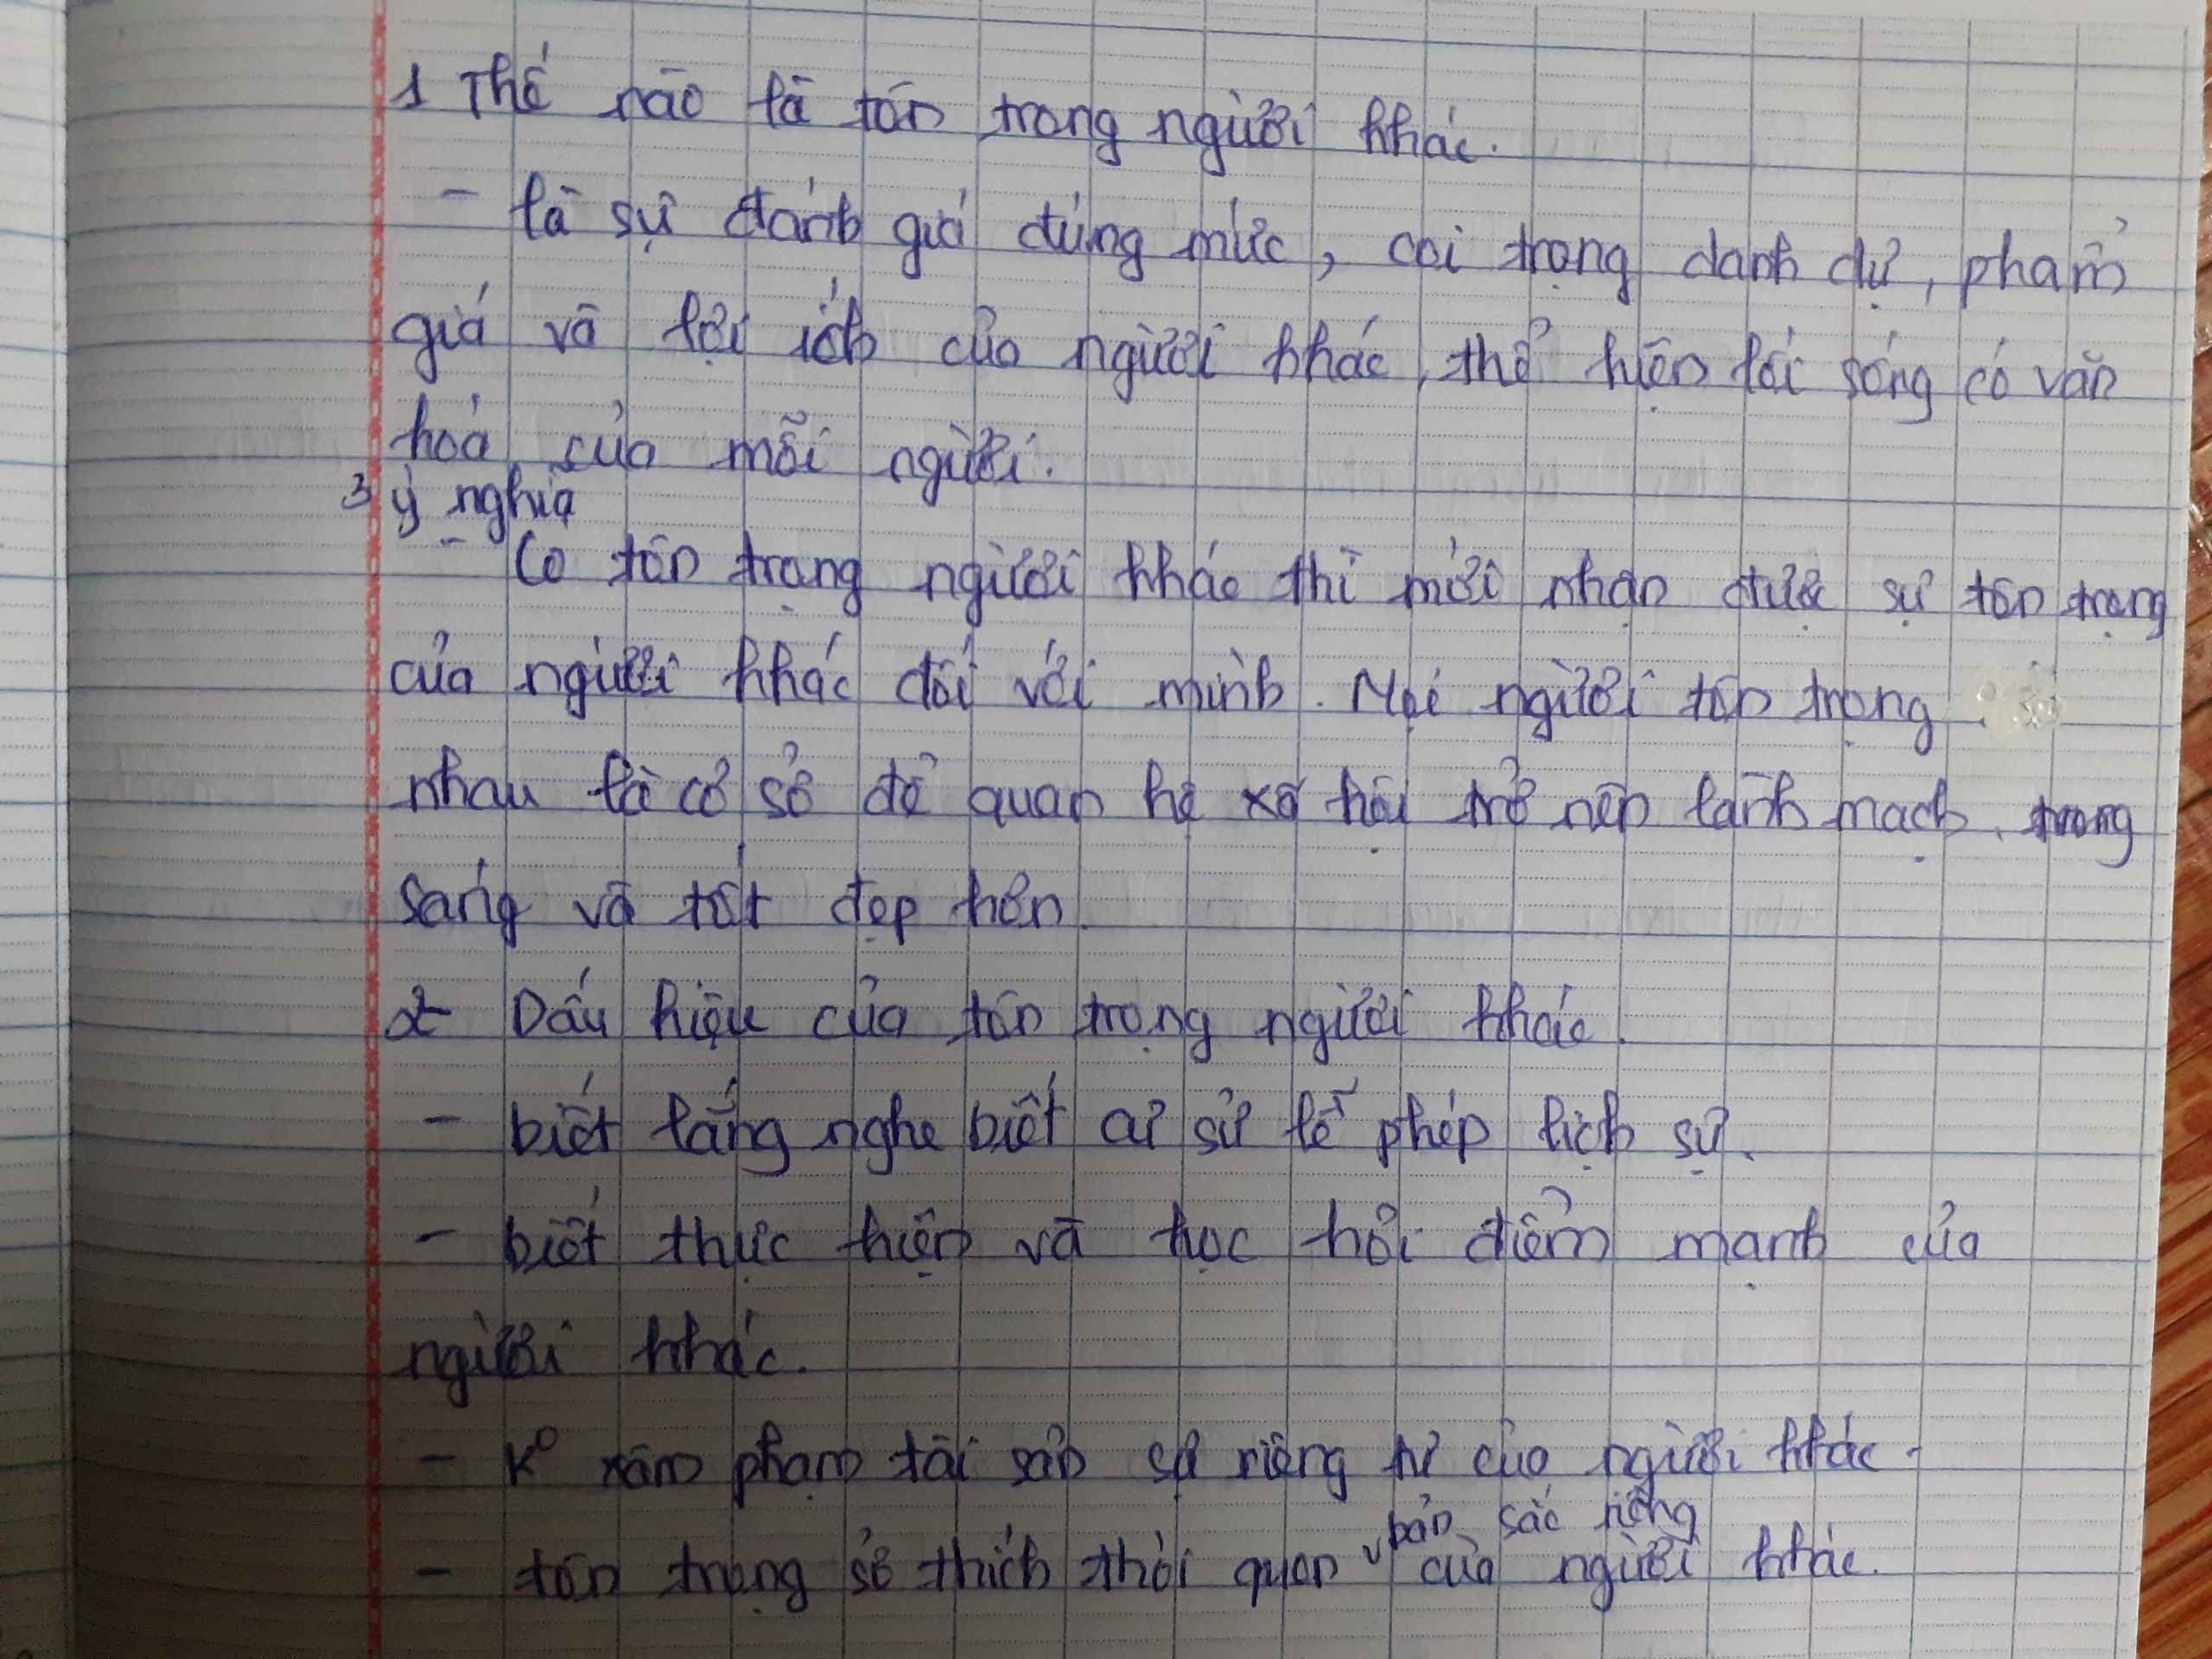 1 Thế nào là tôn trọng người khác.
- là sự đánh giá đúng mức, coi trọng danh dự, phẩm
giá và lợi ích của người khác, thể hiện lối sống có văn
hoá của mỗi người.
3 ý nghĩa
- Có tôn trọng người khác thì mới nhận được sự tôn trọng
của người khác đối với mình. Mọi người tôn trọng
nhau là cơ sở để quan hệ xã hội trở nên lành mạch, trong
sáng và tốt đẹp hơn.
2 Dấu hiệu của tôn trọng người khác.
- biết lắng nghe biết cư sử lễ phép lịch sự.
- biết thực hiện và học hỏi điểm mạnh của
người khác.
- K° xâm phạm tài sản sự riêng tư của người khác.
bản sắc riêng
- tôn trọng sở thích thói quen v của người khác.